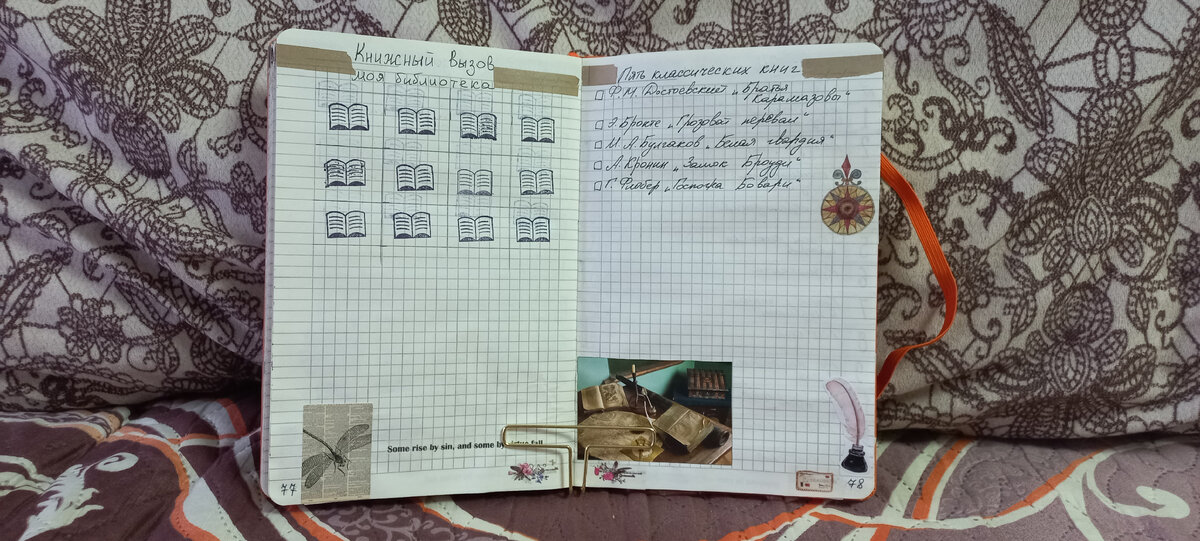 Книжный вызов
моя библиотека
Some rise by sin, and some by virtue fall
77
Пять классических книг
Ф.М. Достоевский „Братья
Карамазовы“
Э. Бронте „Грозовой перевал“
М.А. Булгаков „Белая гвардия“
А. Кронин „Замок Броуди“
Г. Флобер „Госпожа Бовари“
78